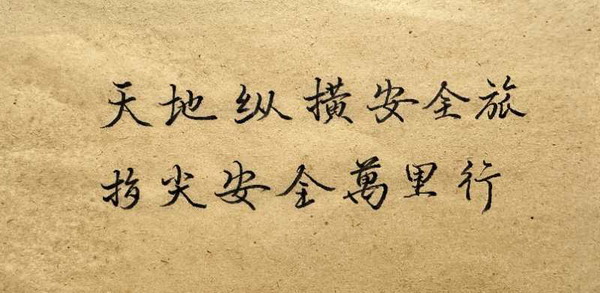 天地纵横安全旅
指尖安全萬里行